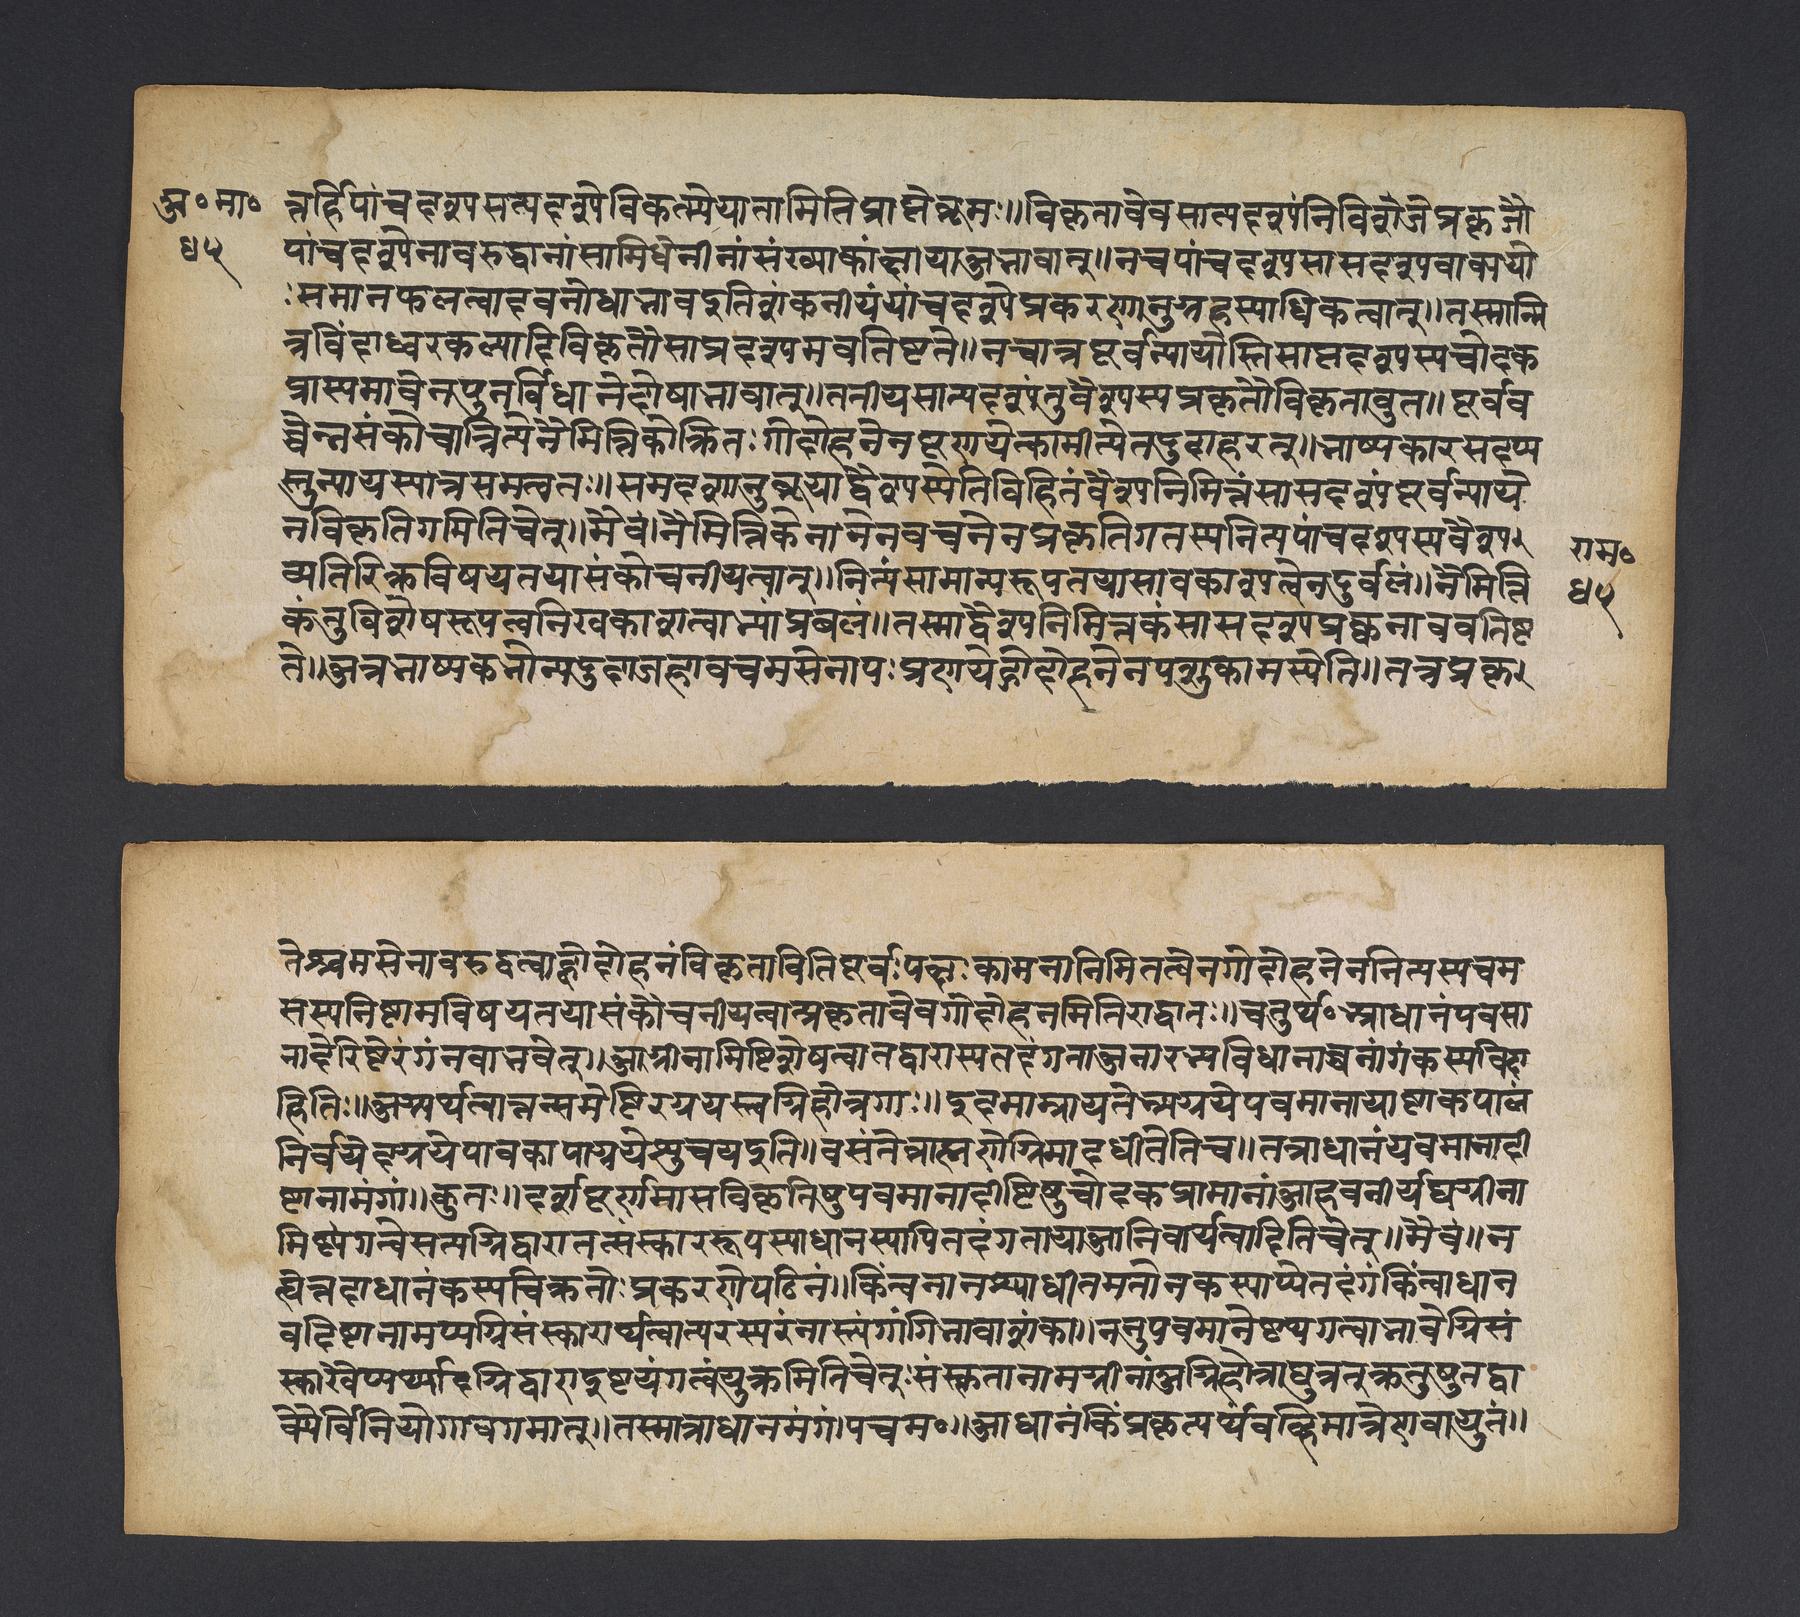 अ॰ मा॰
४५
त्तर्हि पांचदश्य सप्तदश्ये विकल्प्येयातामिति प्राप्ते ब्रूमः॥ विकृतावेव साप्तदश्यं निविशेते प्रकृतौ
पांचदश्येनावरुद्धानां सामिधेनीनां संख्याकांक्षाया अभावात्॥ न च पांचदश्य साप्तदश्य वाक्ययो
ः समानफलत्वादवनोधाभाव इति शंकनीयं पांचदश्ये प्रकरणानुग्रहस्याधिकत्वात्॥ तस्मान्मि
त्रविंदाध्वरकल्पादि विकृतौ साप्तदश्यमवतिष्टते॥ न चात्र पूर्वन्यायोस्ति साप्तदश्यस्य चोदक
प्राप्त्यभावेन पुनर्विधाने दोषाभावात्॥ तृतीय॰ साप्तदश्यं तु वैश्यस्य प्रकृतौ विकृतावुत॥ पूर्वव
च्चेन्न संकोचान्नित्ये नैमित्तिकोक्तितः गोदोहनेन प्रणयेत्कामीत्येतदुदाहरत्॥ भाष्यकारस्तदप्य
स्तु न्यायस्यात्र समत्वतः॥ सप्तदशानुब्रूयाद्वैश्यस्येति विहितं वैश्यनिमित्तं साप्तदश्यं पूर्वन्याये
न विकृतिगमिति चेत्॥ मैवं। नैमित्तिकेनानेन वचनेन प्रकृतिगतस्य नित्यपांचदश्यस्य वैश्य
व्यतिरिक्तविषयतया संकोचनीयत्वात्॥ नित्यं सामान्यरूपतया सावकाशत्वेन दुर्बलं॥ नैमित्ति
कं तु विशेषरूपत्वनिरवकाशत्वाभ्यां प्रबलं॥ तस्माद्वैश्यनिमित्तकं साप्तदश्यं प्रकृतावेवावतिष्ट
ते॥ अत्र भाष्यकृतोन्यदुदाजहाव चमसेनापः प्रणयेद्गोदोहनेन पशुकामस्येति॥ तत्र प्रकृ
राम॰
४५
तेश्चमसेनावरुद्धत्वाद्गोदोहनं विकृताविति पूर्वः पक्षः कामनानिमित्तत्वेन गोदोहनेन नित्यस्य चम
सस्य निष्कामविषयतया संकोचनीयत्वात्प्रकृतावेव गोदोहनमिति राद्धांतः॥ चतुर्थ॰ आधानं पवमा
नादेरिष्टेरंगं नवा भवेत्॥ अग्नीनामिष्टिशेषत्वात्तद्द्वारास्य तदंगता अनारभ्य विधानाच्च नांगं कस्यचिदा
हितिः॥ अग्न्यर्थत्वात्तत्समेष्टिरग्नयस्त्वग्निहोत्रगाः॥ इदमाम्नायते अग्नये पवमानायाष्टाकपालं
निर्वपेदग्नये पावकायाग्नये शुचय इति॥ वसंते ब्राह्मणोग्निमादधीतेति च॥ तत्राधानं पवमानादी
ष्टीनामंगं॥ कुतः॥ दर्शपूर्णमासविकृतिषु पवमानादीष्टिषु चोदकप्राप्तानां आहवनीयाद्यग्नीना
मिष्ट्यंगत्वे सत्यग्निद्वारा तत्संस्काररूपस्याधानस्यापि तदंगताया अनिवार्यत्वादिति चेत्॥ मैवं॥ न
ह्येतदाधानं कस्यचित्क्रतोः प्रकरणे पठितं॥ किंत्वनारभ्याधीतमतो न कस्याप्येतदंगं किंत्वाधान
वदिष्टीनामप्यग्निसंस्कारार्थत्वात्परस्परं नास्त्यंगांगिभावाशंका॥ ननु पवमानेष्ट्यंगत्वाभावेग्निसं
स्कारवैयर्थ्यादग्निद्वारा इष्ट्यंगत्वं युक्तमिति चेत् ः संस्कृतानामग्नीनां अग्निहोत्राद्युत्तरक्रतुषु तद्वा
क्यैर्विनियोगावगमात्॥ तस्मान्नाधानमंगं। पंचम॰॥ आधानं किं प्रकृत्यर्थं वह्निमात्रेथवा युतं॥